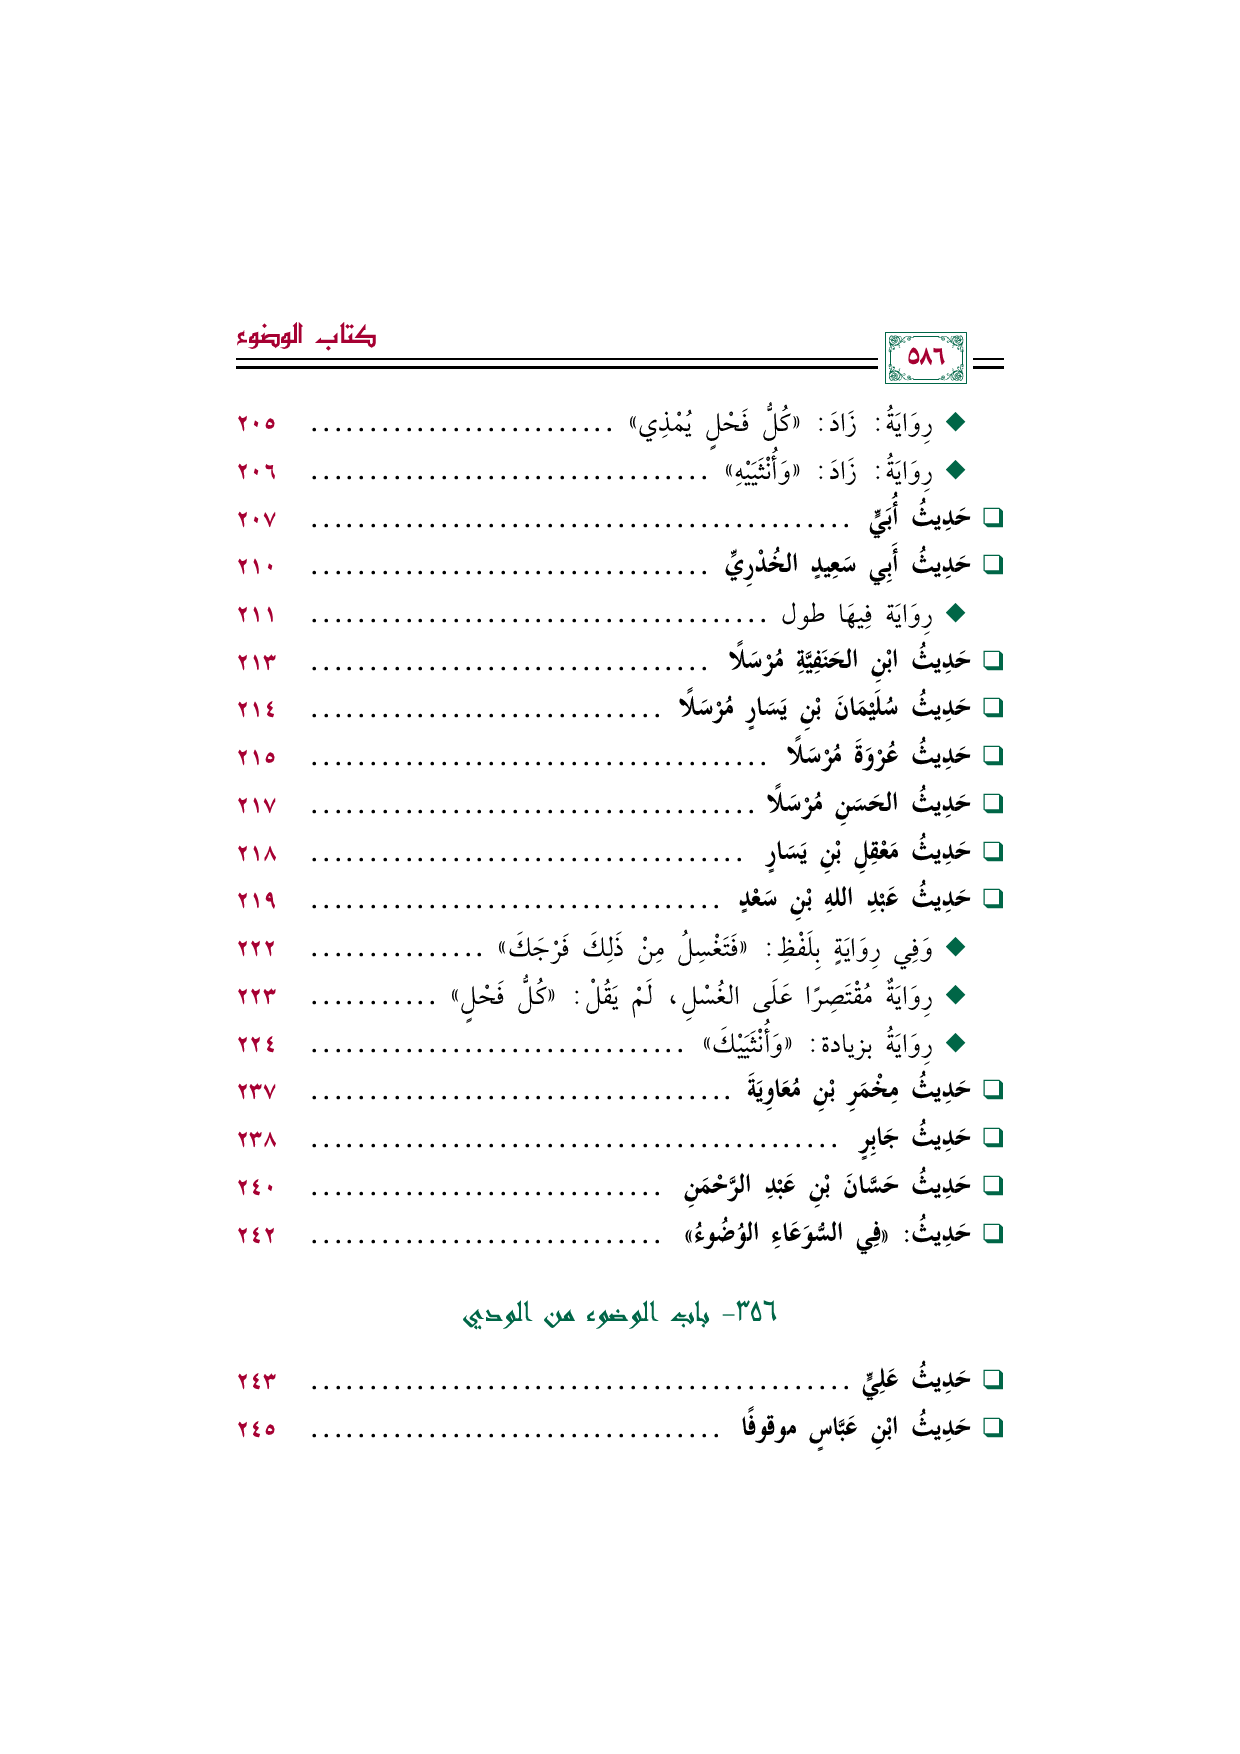 كتاب الوضوء
٥٨٦
◆ رِوَايَةُ: زَادَ: «كُلُّ فَحْلٍ يُمْذِي» .......................... ٢٠٥
◆ رِوَايَةُ: زَادَ: «وَأُنْثَيَيْهِ» .................................. ٢٠٦
❏ حَدِيثُ أُبَيٍّ .............................................. ٢٠٧
❏ حَدِيثُ أَبِي سَعِيدٍ الخُدْرِيِّ .................................. ٢١٠
◆ رِوَايَة فِيهَا طول ....................................... ٢١١
❏ حَدِيثُ ابْنِ الحَنَفِيَّةِ مُرْسَلًا .................................. ٢١٣
❏ حَدِيثُ سُلَيْمَانَ بْنِ يَسَارٍ مُرْسَلًا .............................. ٢١٤
❏ حَدِيثُ عُرْوَةَ مُرْسَلًا ....................................... ٢١٥
❏ حَدِيثُ الحَسَنِ مُرْسَلًا ...................................... ٢١٧
❏ حَدِيثُ مَعْقِلِ بْنِ يَسَارٍ ..................................... ٢١٨
❏ حَدِيثُ عَبْدِ اللهِ بْنِ سَعْدٍ ................................... ٢١٩
◆ وَفِي رِوَايَةٍ بِلَفْظِ: «فَتَغْسِلُ مِنْ ذَلِكَ فَرْجَكَ» ............... ٢٢٢
◆ رِوَايَةٌ مُقْتَصِرًا عَلَى الغُسْلِ، لَمْ يَقُلْ: «كُلُّ فَحْلٍ» ........... ٢٢٣
◆ رِوَايَةُ بزيادة: «وَأُنْثَيَيْكَ» ................................ ٢٢٤
❏ حَدِيثُ مِخْمَرِ بْنِ مُعَاوِيَةَ .................................... ٢٣٧
❏ حَدِيثُ جَابِرٍ ............................................. ٢٣٨
❏ حَدِيثُ حَسَّانَ بْنِ عَبْدِ الرَّحْمَنِ .............................. ٢٤٠
❏ حَدِيثُ: «فِي السُّوَعَاءِ الوُضُوءُ» .............................. ٢٤٢
٣٥٦- باب الوضوء من الودي
❏ حَدِيثُ عَلِيٍّ .............................................. ٢٤٣
❏ حَدِيثُ ابْنِ عَبَّاسٍ موقوفًا ................................... ٢٤٥